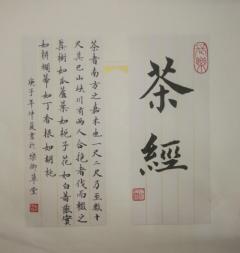 茶經
茶者南方之嘉木也一尺二尺乃至數十
尺其巴山峽川有兩人合抱者伐而掇之
其樹如瓜蘆葉如梔子花如白薔薇實
如栟櫚蒂如丁香根如胡桃
庚子年仲夏書於
草堂